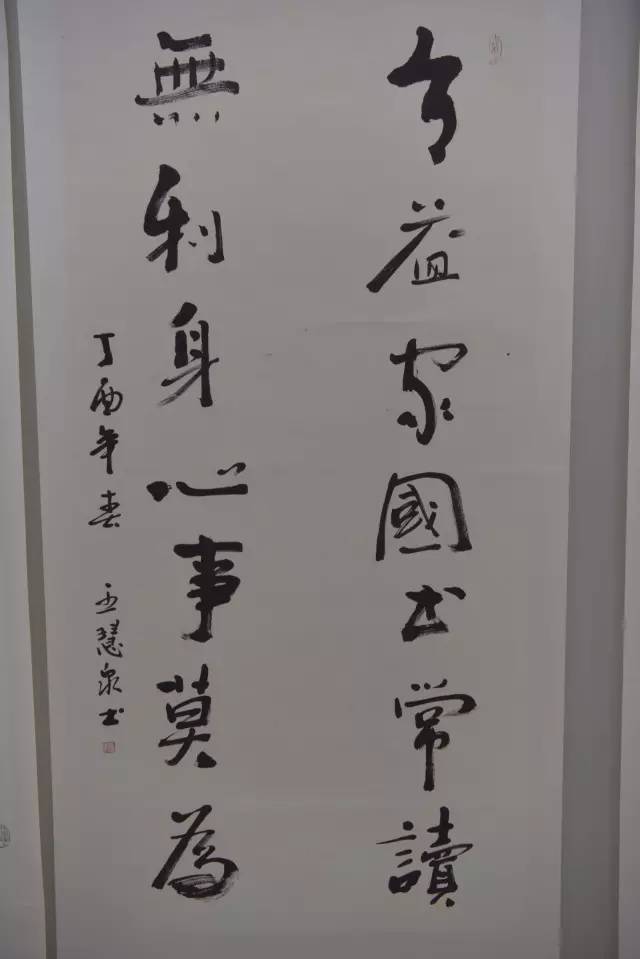 有益家國書常讀
無利身心事莫為
丁酉年春 王慧泉書